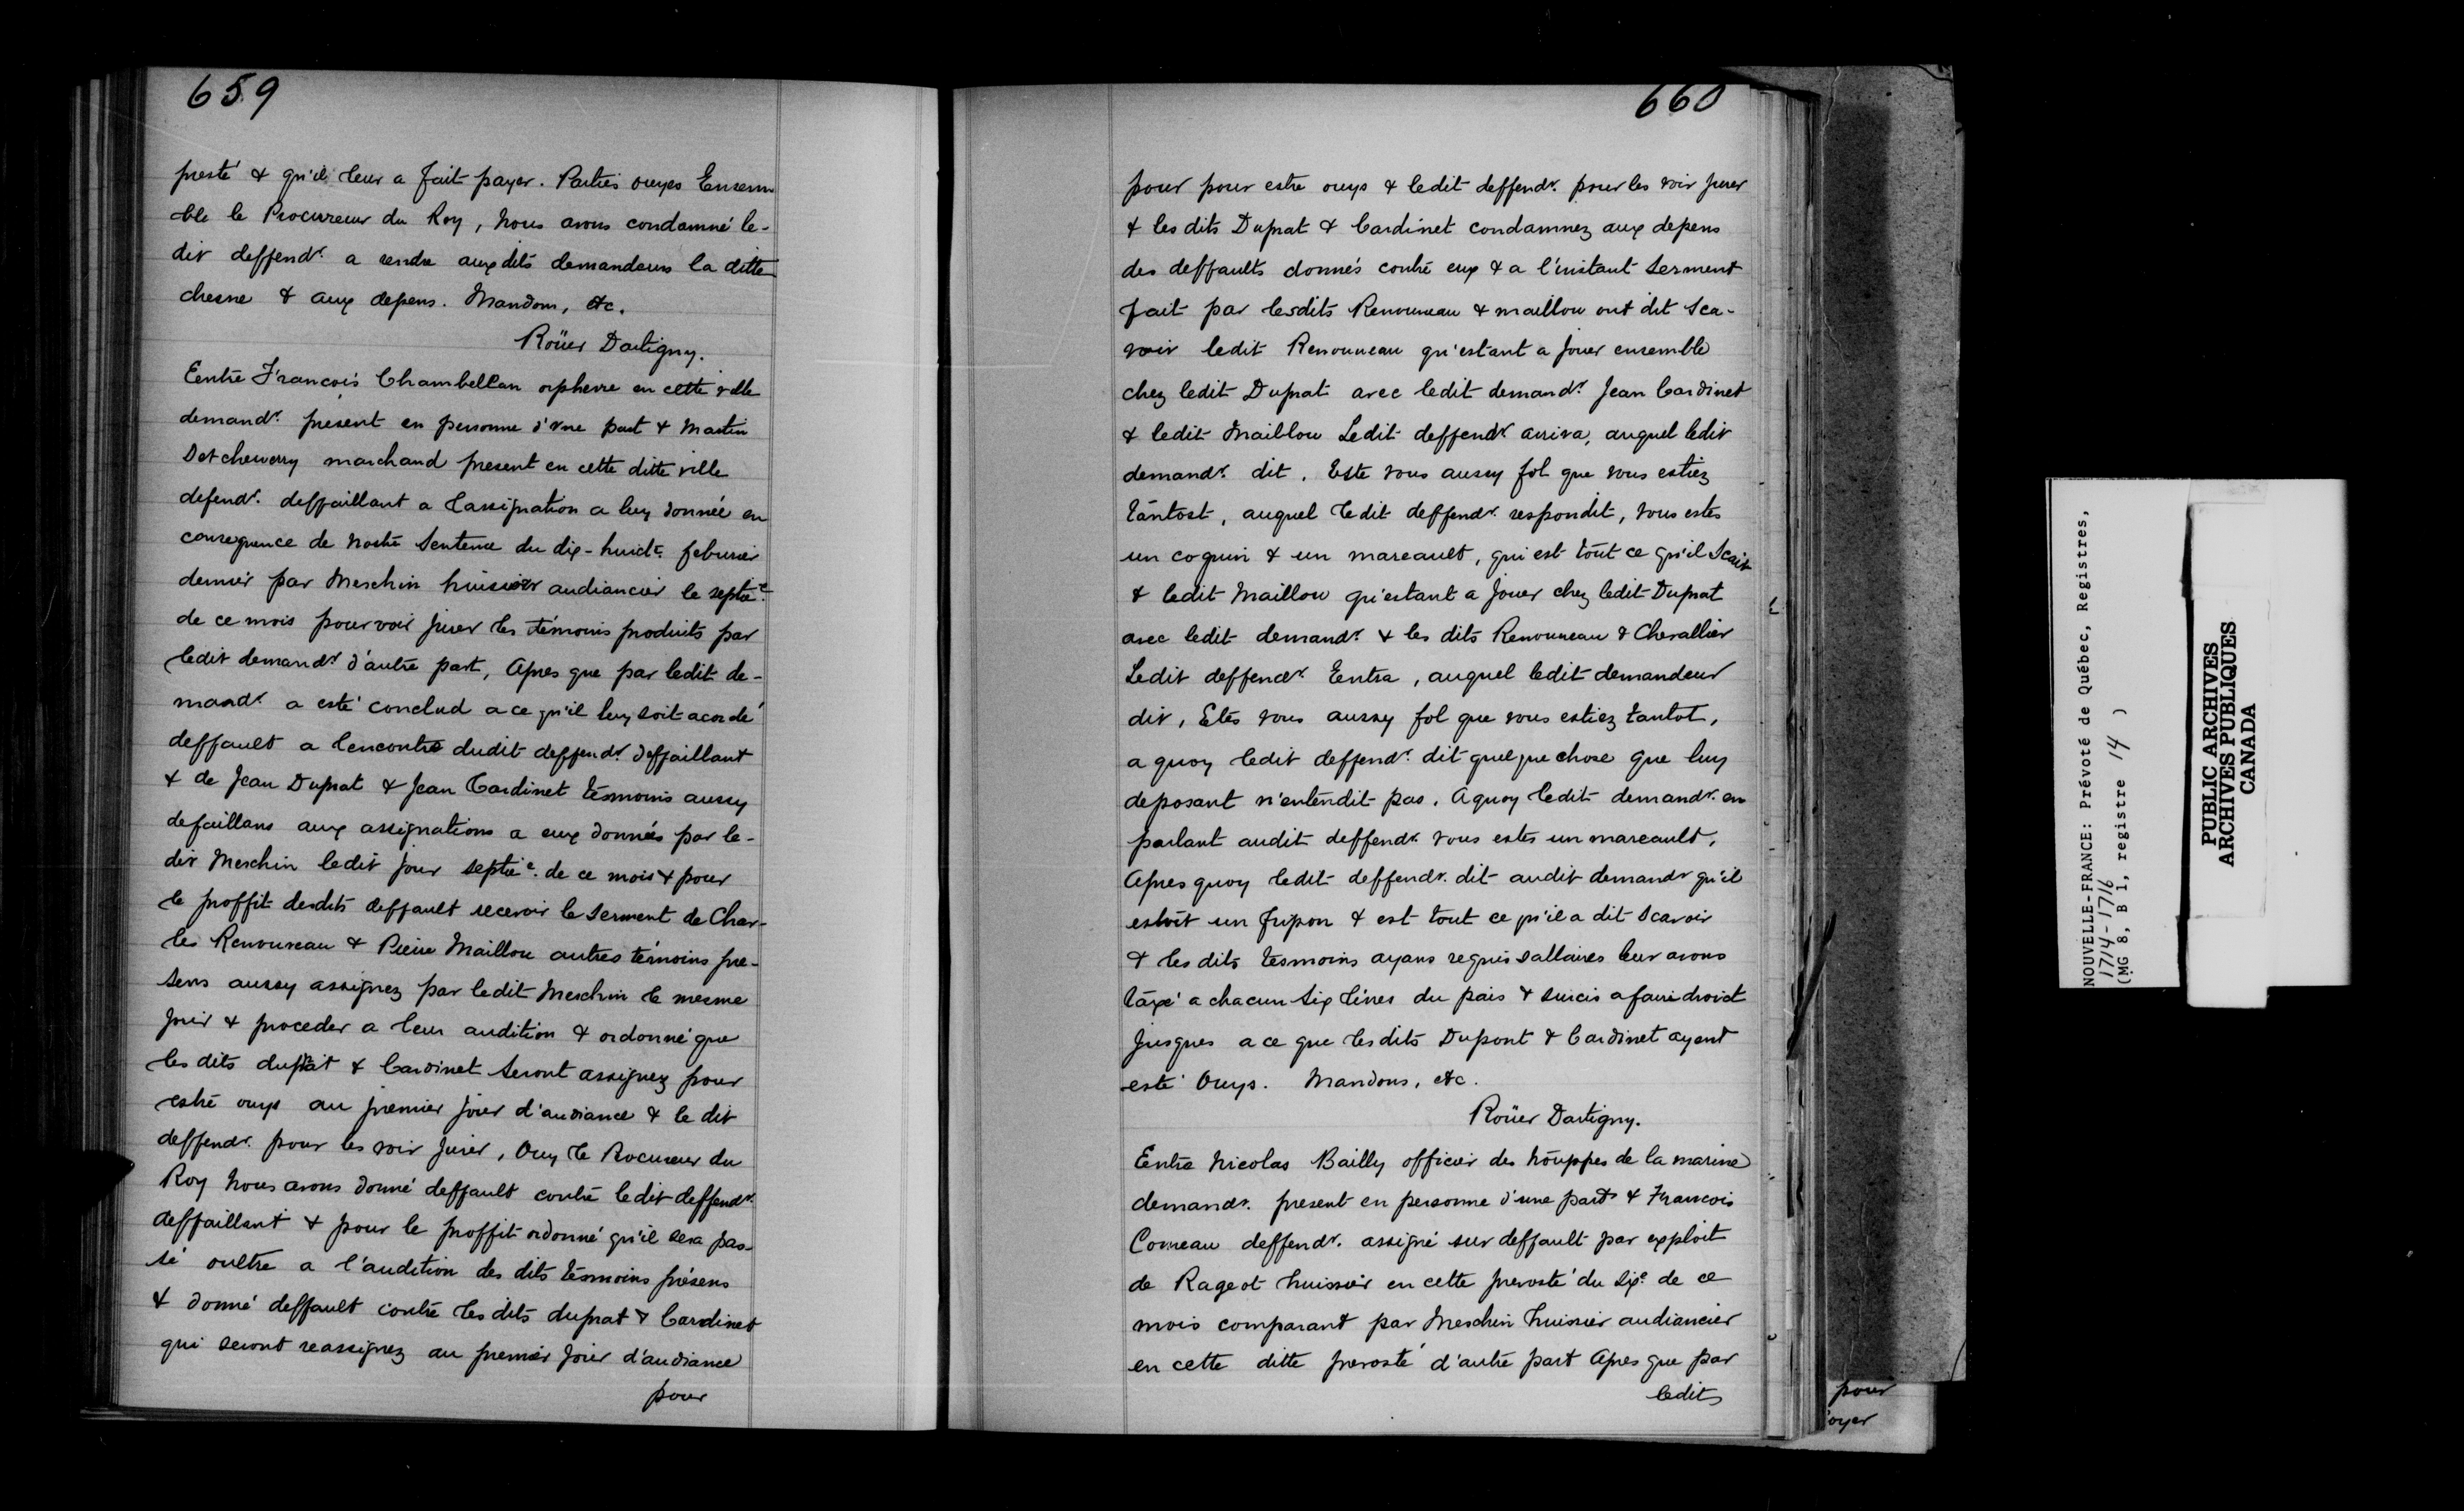 659
presté & qu'il leur a fait payer. Parties ouyes Ensem
ble le Procureur du Roy, nous avons condamné le-
dit deffendr. a rendre aux dits demandeurs la ditte
chesne & aux depens. Mandons, etc.
Roüer Dartigny.
Eentre François Chambellan orphevre en cette ville
demandr. present en personne d'une part & Martin
Detcheverry marchand present en cette ditte ville
defendr. deffaillant a l'assignation a luy donnée en
consequence de nostre Sentence du dix-huicte. febvrier
dernier par Meschin huissier audiancier le septie.
de ce mois pour voir jurer les témoins produits par
ledit demandr. d'autre part, Apres que par ledit de-
mandr. a esté conclud a ce qu'il luy soit acordé
deffault a lencontre dudit deffendr. deffaillant
& de Jean Duprat & Jean Cardinet tesmoins aussy
defaillans aux assignations a eux données par le-
dit Meschin ledit jour septie. de ce mois & pour
le proffit desdits deffault recevoir le serment de Char-
les Renouneau & Pierre Maillou autres témoins pre-
sens aussy assignez par ledit Meschin le mesme
jour & proceder a leur audition & ordonné que
les dits duprat & Cardinet seront assignez pour
estre ouys au premier jour d'audiance & le dit
deffendr. pour les voir jurer, Ouy le Procureur du
Roy nous avons donné deffault contre ledit deffendr.
deffaillant & pour le proffit ordonné qu'il sera pas-
sé oultre a l'audition des dits tesmoins présens
& donné deffault contre les dits duprat & Cardinet
qui seront reassignez au premier jour d'audiance
pour
660
pour pour estre ouys & ledit deffendr. pour les voir jurer
& les dits Duprat & Cardinet condamnez aux depens
des deffaults donnés contre eux & a l'instant serment
fait par lesdits Renouneau & maillou ont dit sca-
voir ledit Renouneau qu'estant a jouer ensemble
chez ledit Duprat avec ledit demandr. Jean Cardinet
& ledit Maillou Ledit deffendr. arriva, auquel ledit
demandr. dit. Este vous aussy fol que vous estiez
tantost, auquel ledit deffendr. respondit, vous estes
un coquin & un mareault, qui est tout ce qu'il scait
& ledit Maillou qu'estant a jouer chez ledit Duprat
avec ledit demandr. & les dits Renouneau & Chevallier
Ledit deffendr. Eentra, auquel ledit demandeur
dit, Etes vous aussy fol que vous estiez tantot,
a quoy ledit deffendr. dit quelque chose que luy
deposant n'entendit pas. A quoy ledit demandr. en
parlant audit deffendr. vous estes un mareault,
Apres quoy ledit deffendr. dit audit demandr qu'il
estoit un fripon & est tout ce qu'il a dit scavoir
& les dits tesmoins ayans requis sallaires leur avons
taxé a chacun six livres du pais & surcis a faire droict
jusques a ce que les dits Dupont & Cardinet ayent
esté Ouys. Mandons, etc.
Roüer Dartigny.
Entre Nicolas Bailly officier des trouppes de la marine
demandr. present en personne d'une part & Francois
Comeau deffendr. assigné sur deffault par exploit
de Rageot huissier en cette prevosté du sixe. de ce
mois comparant par Meschin huissier audiancier
en cette ditte prevosté d'autre part Apres que par
ledit
pour
oyer
NOUVELLE-FRANCE: Prévoté de Québec, Registres,
1714-1716
(MG 8, B 1, registre 14 )
PUBLIC ARCHIVES
ARCHIVES PUBLIQUES
CANADA